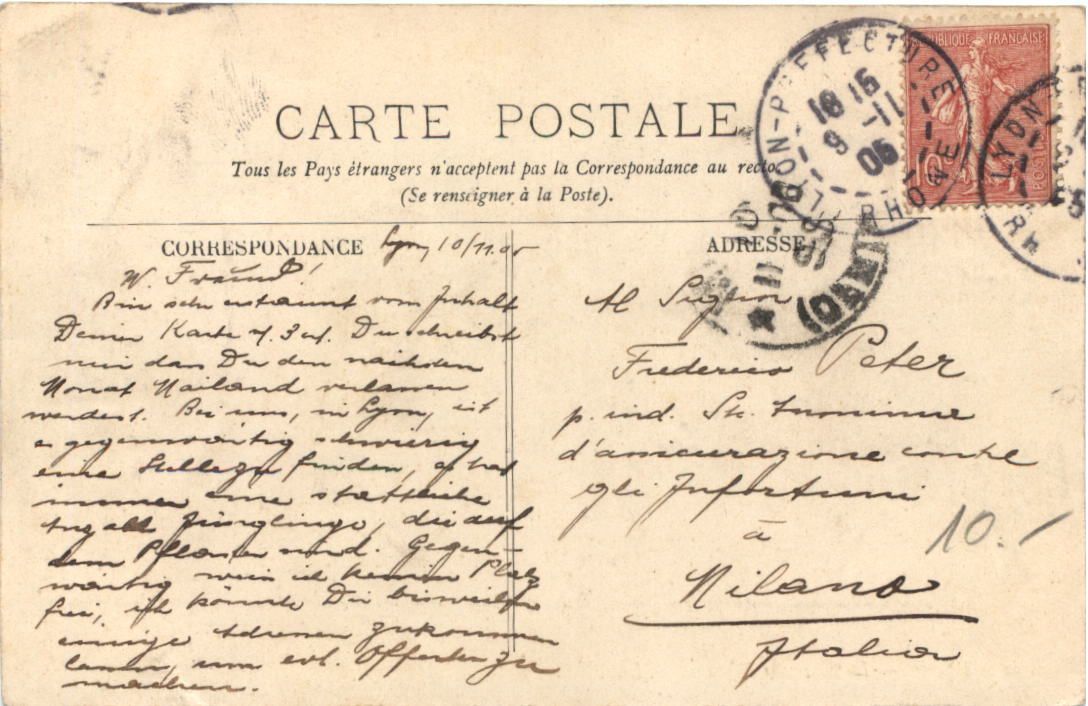 CARTE POSTALE
Tous les Pays étrangers n'acceptent pas la Correspondance au recto.
(Se renseigner à la Poste).
REPUBLIQUE FRANÇAISE
10
POSTES
LYON-PREFECTURE
RHONE
16 15
9 -11
05
LYON
CORRESPONDANCE
Lyon, 10/11.05
W. Freund!
Bin sehr erstaunt vom Inhalt
Deiner Karte v. 3 ct. Du schreibst
mir dass Du den nächsten
Monat Mailand verlassen
werdest. Bei uns, in Lyon, ist
es gegenwärtig schwierig
eine Stelle zu finden, es hat
immer eine stattliche
Anzahl Jünglinge, die auf
dem Pflaster sind. Gegen-
wärtig weiss ich keinen Platz
frei, ich könnte Dir bisweilen
einige Adressen zukommen
lassen, um evt. Offerten zu
machen.
ADRESSE
Al Signor
Frederico Peter
p. ind. Sta. Anonima
d'assicurazione contre
gli Infortuni
à
Milano
Italia
10.-